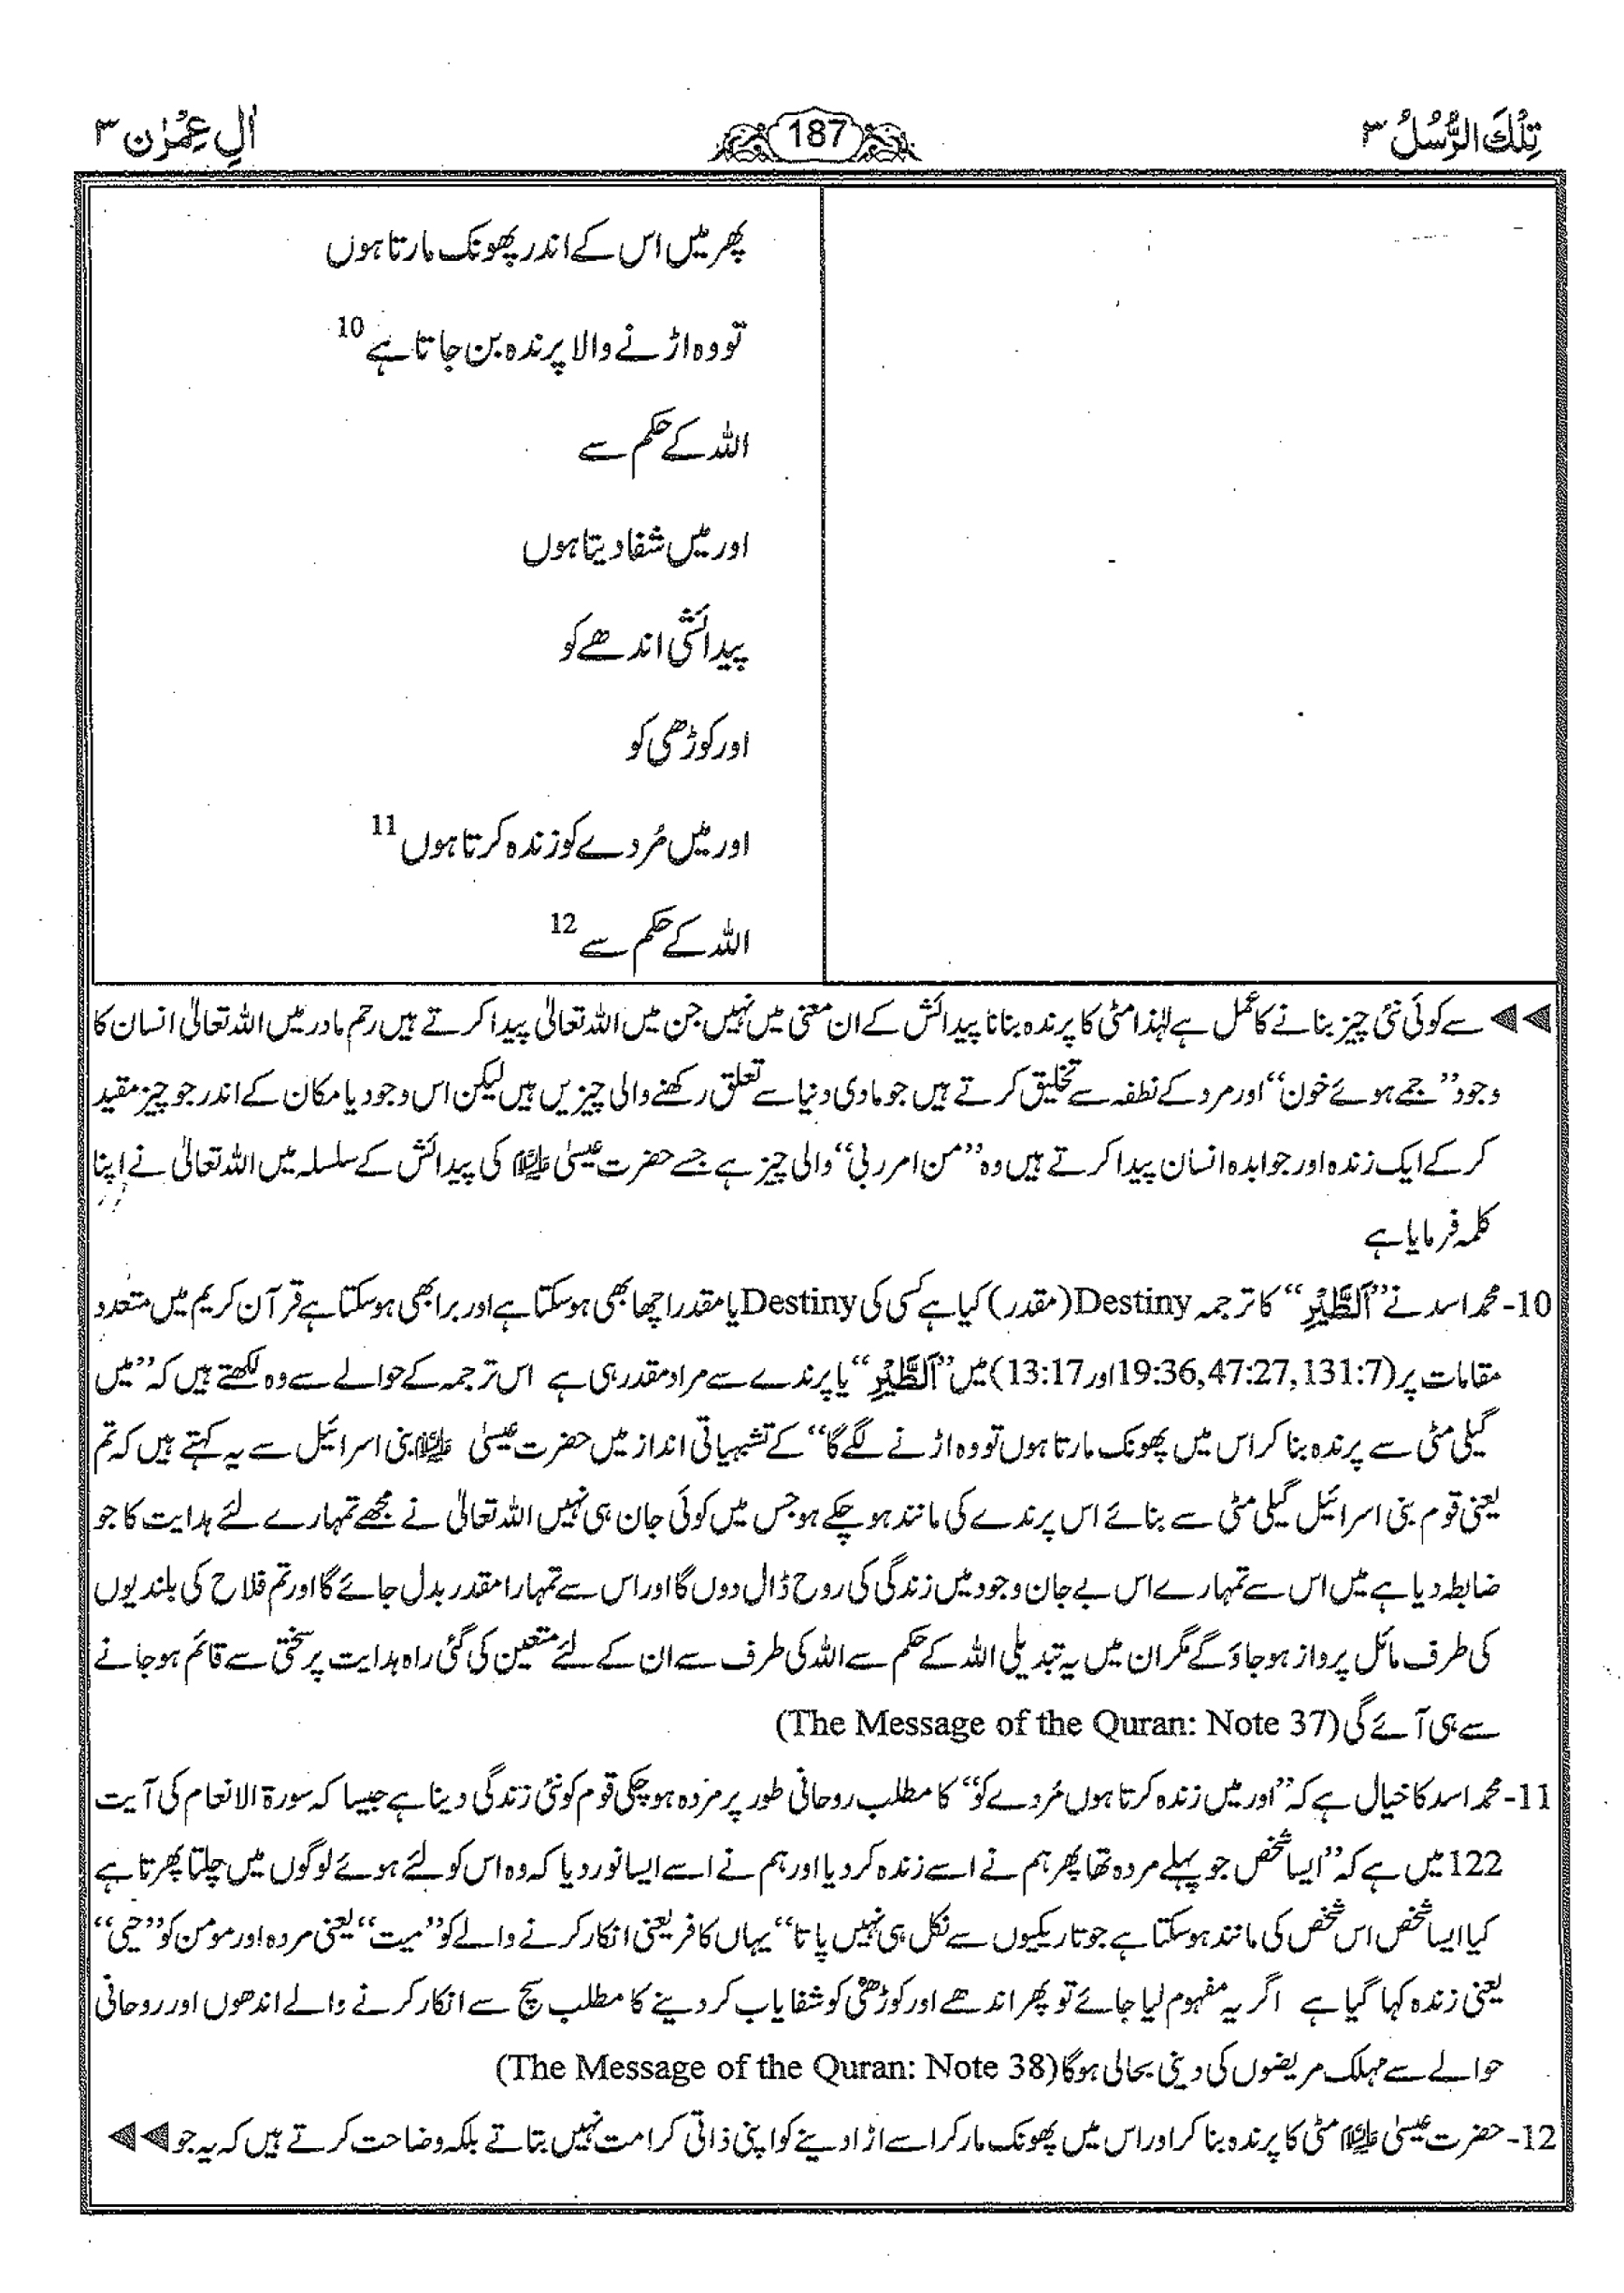 تِلْكَ الرُّسُلُ ۳
187
اٰلِ عِمْرٰن ۳
پھر میں اس کے اندر پھونک مارتا ہوں
تو وہ اڑنے والا پرندہ بن جاتا ہے 10
اللہ کے حکم سے
اور میں شفا دیتا ہوں
پیدائشی اندھے کو
اور کوڑھی کو
اور میں مُردے کو زندہ کرتا ہوں 11
اللہ کے حکم سے 12
◀◀ سے کوئی نئی چیز بنانے کا عمل ہے لہٰذا مٹی کا پرندہ بنانا پیدائش کے ان معنی میں نہیں جن میں اللہ تعالیٰ پیدا کرتے ہیں رحم مادر میں اللہ تعالیٰ انسان کا
وجود ”جمے ہوئے خون“ اور مرد کے نطفہ سے تخلیق کرتے ہیں جو مادی دنیا سے تعلق رکھنے والی چیزیں ہیں لیکن اس وجود یا مکان کے اندر جو چیز مقید
کر کے ایک زندہ اور جوابدہ انسان پیدا کرتے ہیں وہ ”من امر ربی“ والی چیز ہے جسے حضرت عیسیٰ علیہ السلام کی پیدائش کے سلسلہ میں اللہ تعالیٰ نے اپنا
کلمہ فرمایا ہے
10- محمد اسد نے ”اَلطَّيْرِ“ کا ترجمہ Destiny (مقدر) کیا ہے کسی کی Destiny یا مقدر اچھا بھی ہو سکتا ہے اور برا بھی ہو سکتا ہے قرآن کریم میں متعدد
مقامات پر (131:7 ,47:27 ,19:36 اور 13:17) میں ”اَلطَّيْرِ“ یا پرندے سے مراد مقدر ہی ہے اس ترجمہ کے حوالے سے وہ لکھتے ہیں کہ ”میں
گیلی مٹی سے پرندہ بنا کر اس میں پھونک مارتا ہوں تو وہ اڑنے لگے گا“ کے تشبیہاتی انداز میں حضرت عیسیٰ علیہ السلام بنی اسرائیل سے یہ کہتے ہیں کہ تم
یعنی قوم بنی اسرائیل گیلی مٹی سے بنائے اس پرندے کی مانند ہو چکے ہو جس میں کوئی جان ہی نہیں اللہ تعالیٰ نے مجھے تمہارے لئے ہدایت کا جو
ضابطہ دیا ہے میں اس سے تمہارے اس بے جان وجود میں زندگی کی روح ڈال دوں گا اور اس سے تمہارا مقدر بدل جائے گا اور تم فلاح کی بلندیوں
کی طرف مائل پرواز ہو جاؤ گے مگر ان میں یہ تبدیلی اللہ کے حکم سے اللہ کی طرف سے ان کے لئے متعین کی گئی راہ ہدایت پر سختی سے قائم ہو جانے
سے ہی آئے گی (The Message of the Quran: Note 37)
11- محمد اسد کا خیال ہے کہ ”اور میں زندہ کرتا ہوں مُردے کو“ کا مطلب روحانی طور پر مردہ ہو چکی قوم کو نئی زندگی دینا ہے جیسا کہ سورۃ الانعام کی آیت
122 میں ہے کہ ”ایسا شخص جو پہلے مردہ تھا پھر ہم نے اسے زندہ کر دیا اور ہم نے اسے ایسا نور دیا کہ وہ اس کو لئے ہوئے لوگوں میں چلتا پھرتا ہے
کیا ایسا شخص اس شخص کی مانند ہو سکتا ہے جو تاریکیوں سے نکل ہی نہیں پاتا“ یہاں کافر یعنی انکار کرنے والے کو ”میت“ یعنی مردہ اور مومن کو ”حیی“
یعنی زندہ کہا گیا ہے اگر یہ مفہوم لیا جائے تو پھر اندھے اور کوڑھی کو شفایاب کر دینے کا مطلب سچ سے انکار کرنے والے اندھوں اور روحانی
حوالے سے مہلک مریضوں کی دینی بحالی ہوگا (The Message of the Quran: Note 38)
12- حضرت عیسیٰ علیہ السلام مٹی کا پرندہ بنا کر اور اس میں پھونک مار کر اسے اڑا دینے کو اپنی ذاتی کرامت نہیں بتاتے بلکہ وضاحت کرتے ہیں کہ یہ جو ◀◀